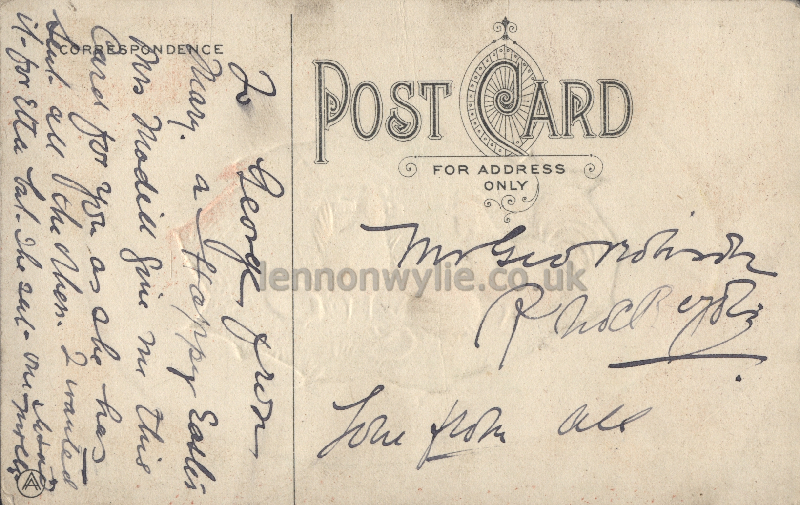 CORRESPONDENCE
To George from
Mary. a Happy Easter
Mrs Modill give me this
Card for you as she has
sent all the others. I wanted
it for Etta but she sent one
POST CARD
FOR ADDRESS
ONLY
Mr Geo Robinson
Love from all
lennonwylie.co.uk